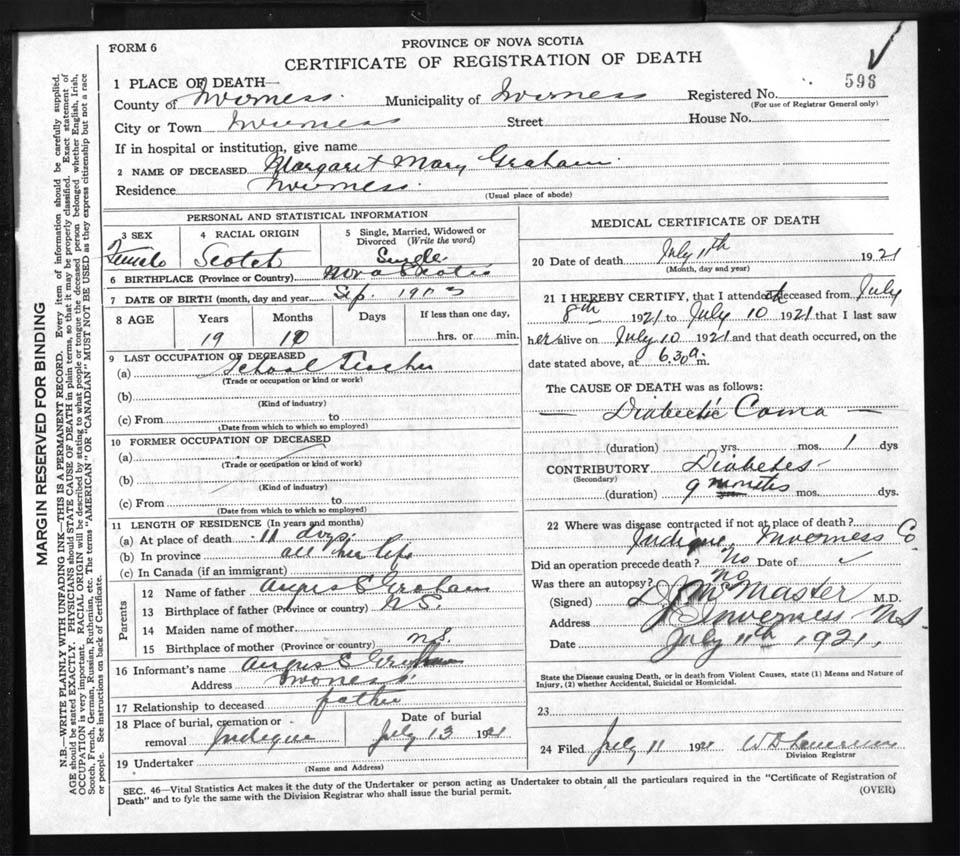 FORM 6
PROVINCE OF NOVA SCOTIA
CERTIFICATE OF REGISTRATION OF DEATH
598
1 PLACE OF DEATH—
County of Inverness. Municipality of Inverness Registered No.
(For use of Registrar General only)
City or Town Inverness Street House No.
If in hospital or institution, give name
2 NAME OF DECEASED Margaret Mary Graham.
Residence Inverness.
(Usual place of abode)
PERSONAL AND STATISTICAL INFORMATION
3 SEX Female
4 RACIAL ORIGIN Scotch
5 Single, Married, Widowed or Divorced (Write the word) Single
6 BIRTHPLACE (Province or Country) Nova Scotia
7 DATE OF BIRTH (month, day and year) Sep.
8 AGE Years Months Days If less than one day,
19 10 hrs. or min.
9 LAST OCCUPATION OF DECEASED
(a) School Teacher
(Trade or occupation or kind or work)
(b)
(Kind of industry)
(c) From to
(Date from which to which so employed)
10 FORMER OCCUPATION OF DECEASED
(a)
(Trade or occupation or kind of work)
(b)
(Kind of industry)
(c) From to
(Date from which to which so employed)
11 LENGTH OF RESIDENCE (In years and months)
(a) At place of death 11 days
(b) In province all her life
(c) In Canada (if an immigrant)
Parents
12 Name of father Angus S Graham
13 Birthplace of father (Province or country) N.S.
14 Maiden name of mother
15 Birthplace of mother (Province or country) N.S.
16 Informant's name Angus S Graham
Address Inverness.
17 Relationship to deceased father
18 Place of burial, cremation or removal Judique
Date of burial July 13 1921
19 Undertaker
(Name and Address)
MEDICAL CERTIFICATE OF DEATH
20 Date of death July 11th 1921
(Month, day and year)
21 I HEREBY CERTIFY, that I attended deceased from July
8th 1921 to July 10 1921 that I last saw
her alive on July 10 1921 and that death occurred, on the
date stated above, at 6.30 a. m.
The CAUSE OF DEATH was as follows:
— Diabetic Coma —
(duration) yrs. mos. 1 dys
CONTRIBUTORY Diabetes
(Secondary)
(duration) 9 months mos. dys.
22 Where was disease contracted if not at place of death?
Judique, Inverness Co.
Did an operation precede death? No Date of
Was there an autopsy? No
(Signed) McMaster M.D.
Address Inverness NS.
Date July 11th 1921.
State the Disease causing Death, or in death from Violent Causes, state (1) Means and Nature of
Injury, (2) whether Accidental, Suicidal or Homicidal.
23
24 Filed July 11 1921
Division Registrar
SEC. 46—Vital Statistics Act makes it the duty of the Undertaker or person acting as Undertaker to obtain all the particulars required in the "Certificate of Registration of
Death" and to fyle the same with the Division Registrar who shall issue the burial permit.
(OVER)
MARGIN RESERVED FOR BINDING
N.B.—WRITE PLAINLY WITH UNFADING INK—THIS IS A PERMANENT RECORD. Every item of information should be carefully supplied.
AGE should be stated EXACTLY. PHYSICIANS should STATE CAUSE OF DEATH in plain terms, so that it may be properly classified. Exact statement of
OCCUPATION is very important. RACIAL ORIGIN will be described by stating to what people or tongue the deceased person belonged whether English, Irish,
Scotch, French, German, Russian, Ruthenian, etc. The terms "AMERICAN" or "CANADIAN" MUST NOT BE USED as they express citizenship but not a race
or people. See instructions on back of Certificate.